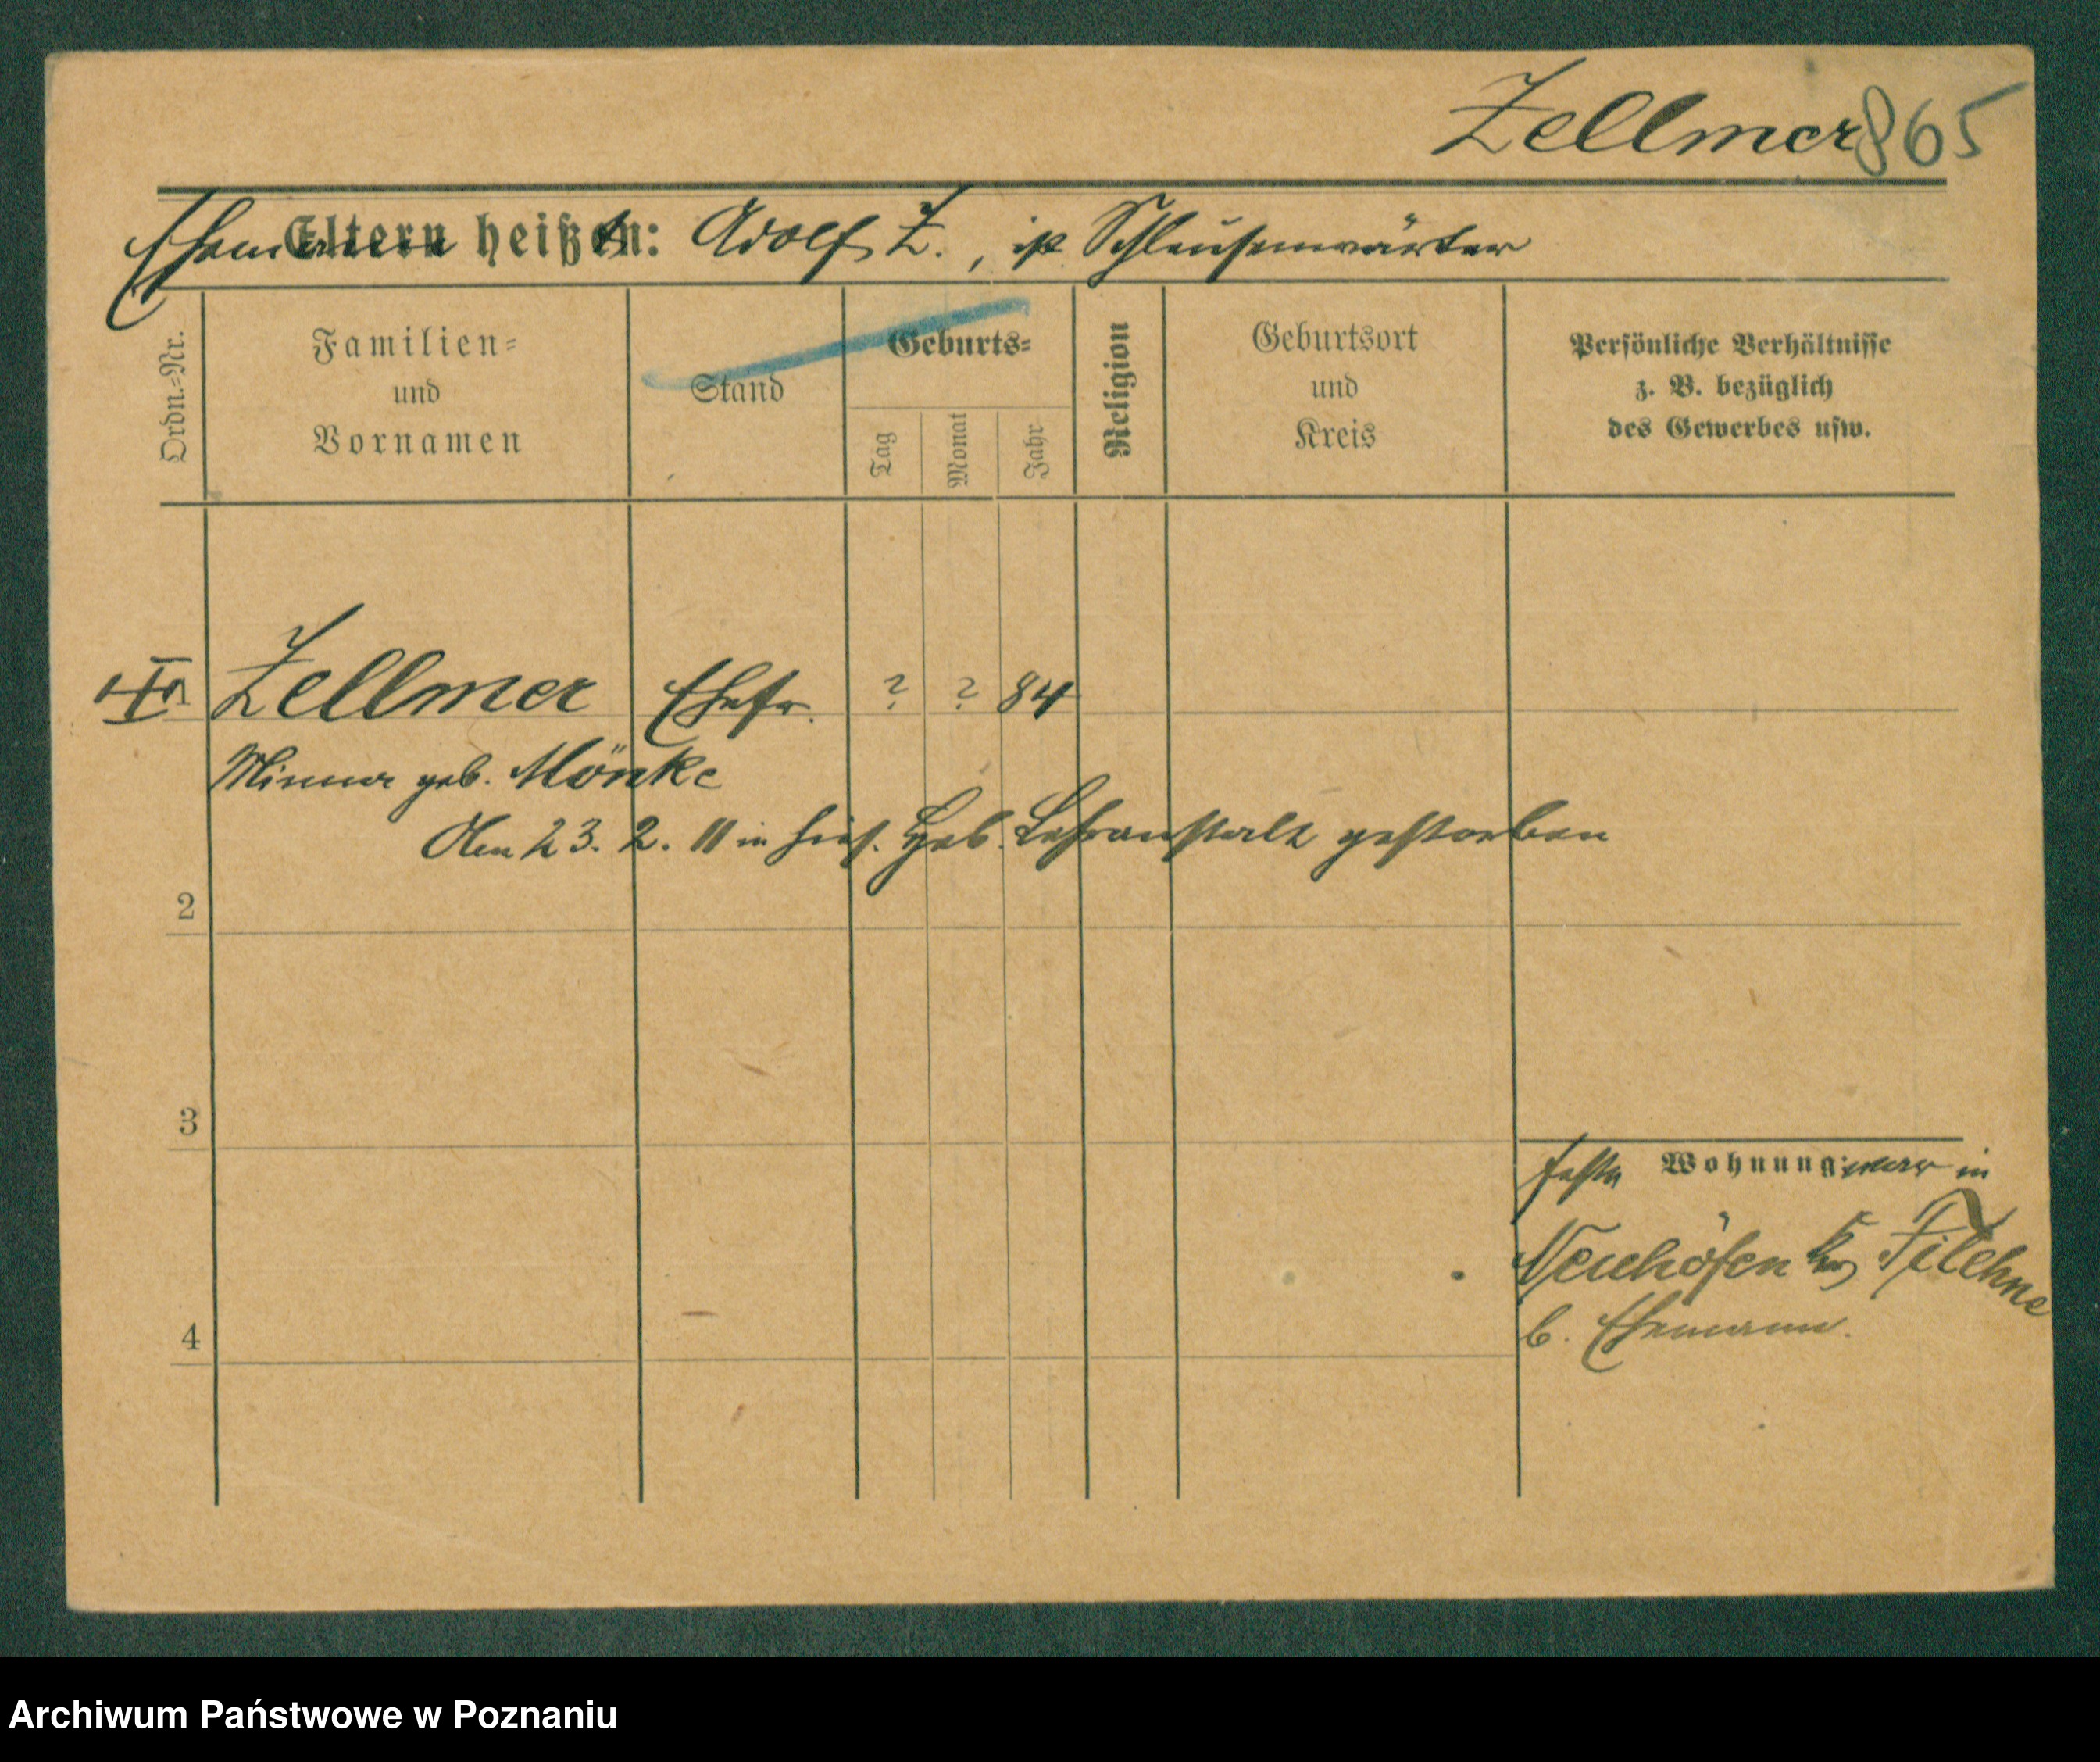 Zellmer 865
Ehemann heißt: Adolf Z., ist Schleusenwärter
Ordn.=Nr.
Familien=
und
Vornamen
Stand
Geburts=
Tag
Monat
Jahr
Religion
Geburtsort
und
Kreis
Persönliche Verhältnisse
z. B. bezüglich
des Gewerbes usw.
1 Zellmer Ehefr. ? ? 84
Minna geb. Mönke
Am 23. 2. 11 in hies. Heb. Lehranstalt gestorben
2
3
feste Wohnung: war in
Neuhöfen Krs Filehne
b. Ehemann.
4
Archiwum Państwowe w Poznaniu